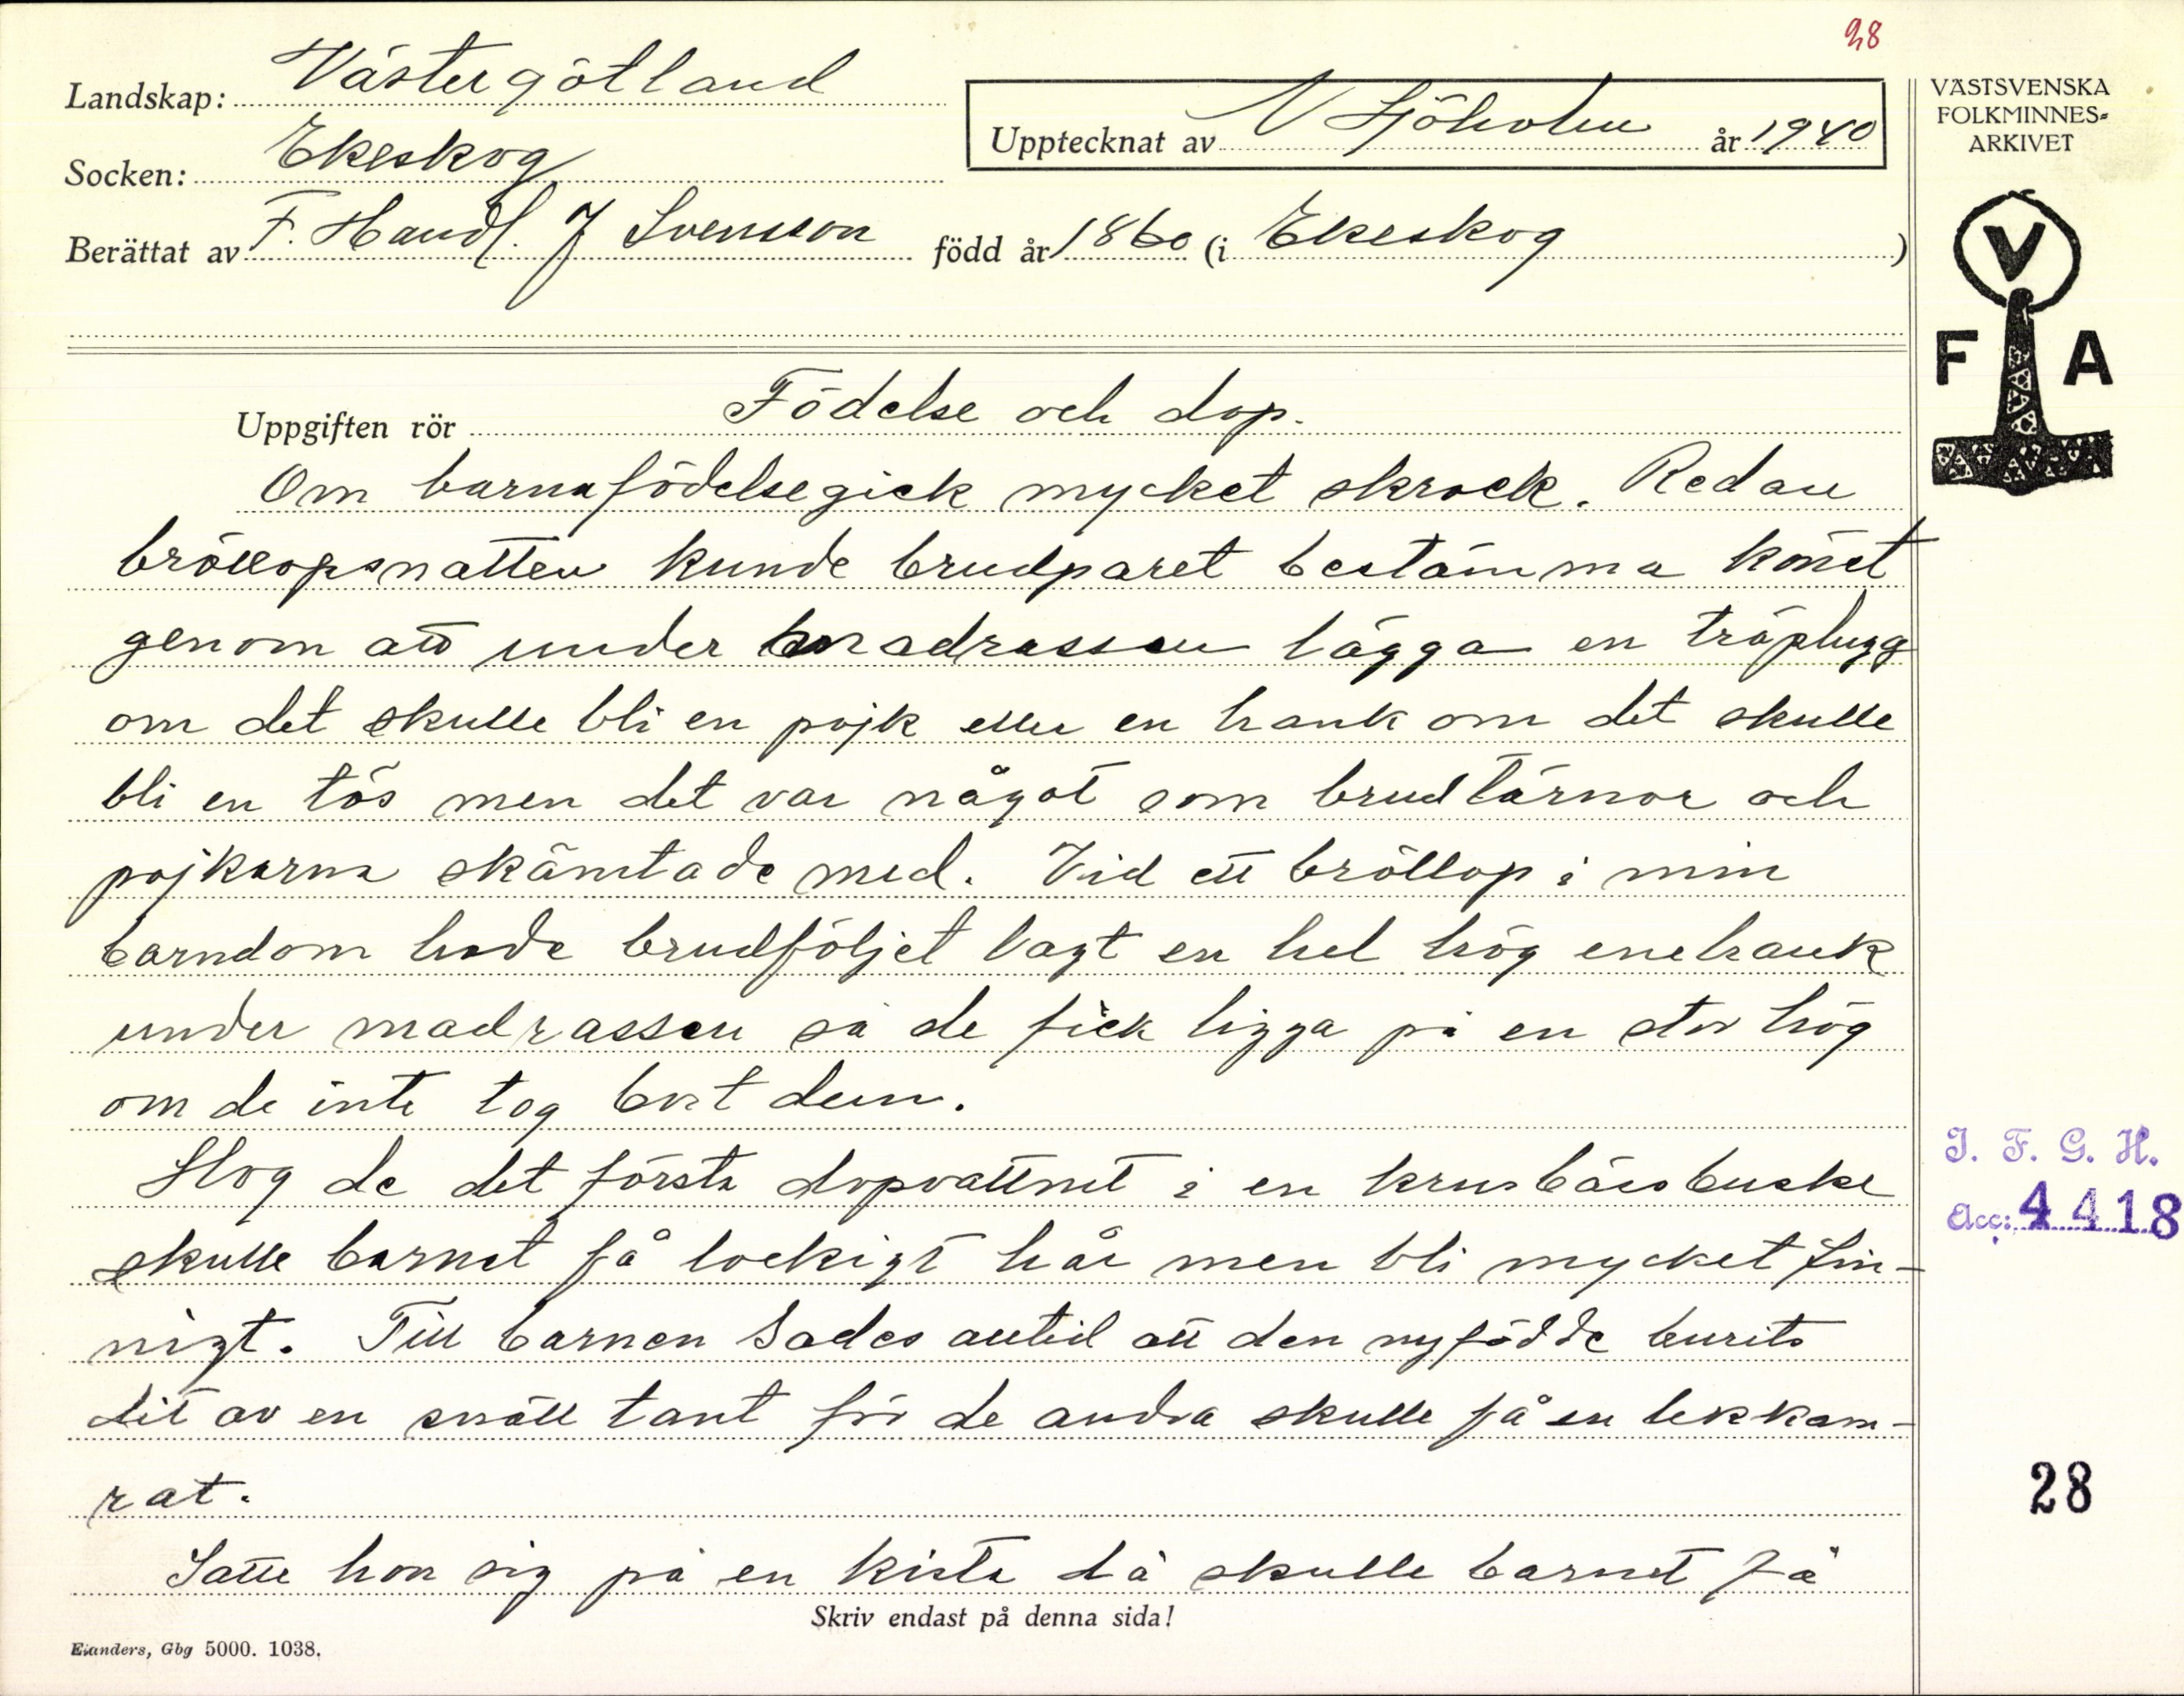 28
Landskap: Västergötland
Upptecknat av N Sjöholm år 1940
VÄSTSVENSKA
FOLKMINNES=
ARKIVET
Socken: Ekeskog
Berättat av F. Handl. J Svensson född år 1860 (i Ekeskog )
V
F A
Uppgiften rör Födelse och dop.
Om barnafödelse gick mycket skrock. Redan
bröllopsnatten kunde brudparet bestämma könet
genom att under madrassen lägga en träplugg
om det skulle bli en pojk eller en hank om det skulle
bli en tös men det var något som brudtärnor och
pojkarna skämtade med. Vid ett bröllop i min
barndom hade brudföljet lagt en hel hög enehank
under madrassen så de fick ligga på en stor hög
om de inte tog bort dem.
Slog de det första dopvattnet i en krusbärsbuske
skulle barnet få lockigt hår men bli mycket fin-
nigt. Till barnen sades alltid att den nyfödde burits
dit av en snäll tant för de andra skulle få en lekkam-
rat.
Satte hon sig på en kista då skulle barnet få
Skriv endast på denna sida!
Elanders, Gbg 5000. 1038.
I. F. G. H.
Acc: 4418
28